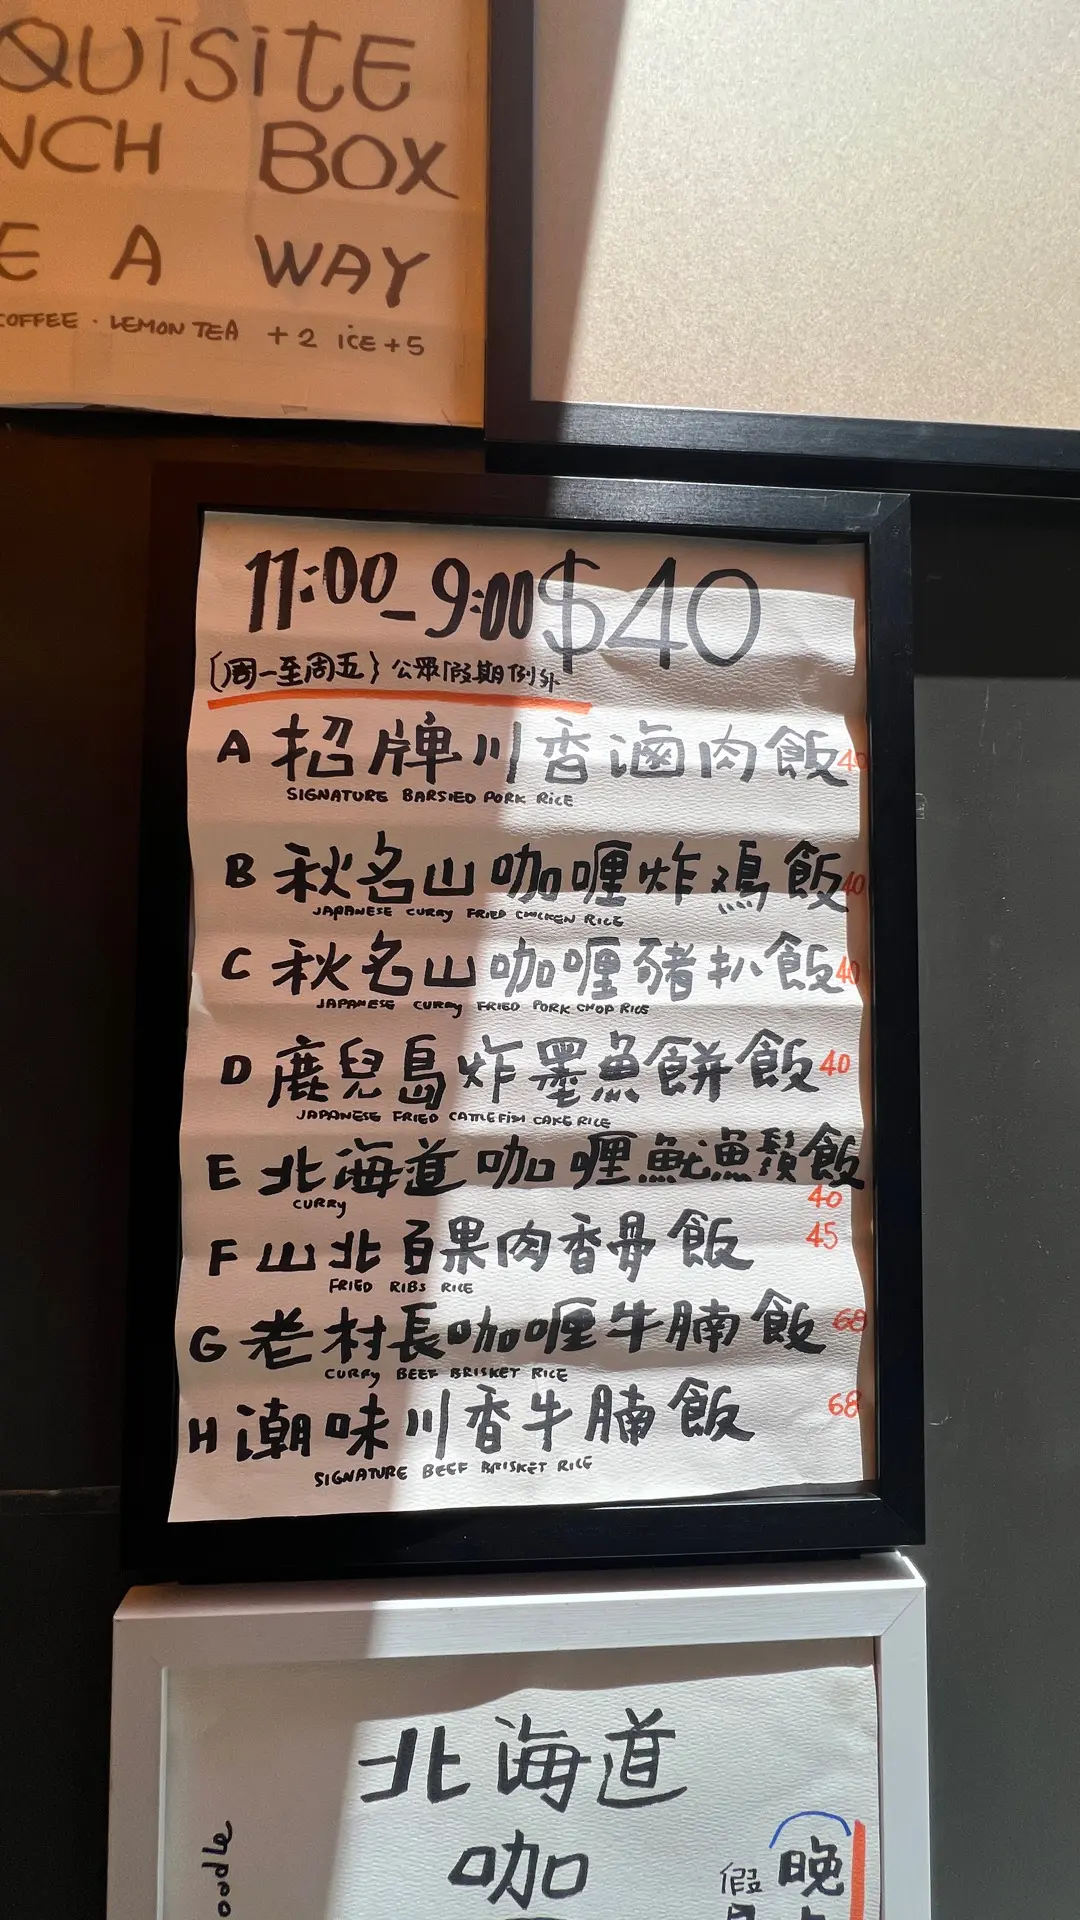 QUISITE
NCH BOX
E A WAY
COFFEE · LEMON TEA +2 ICE +5
11:00-9:00 $40
(周一至周五) 公眾假期例外
A 招牌川香滷肉飯 40
SIGNATURE BARSIED PORK RICE
B 秋名山咖喱炸鳮飯 40
JAPANESE CURRY FRIED CHICKEN RICE
C 秋名山咖喱豬扒飯 40
JAPANESE CURRY FRIED PORK CHOP RICE
D 鹿兒島炸墨魚餅飯 40
JAPANESE FRIED CATTLEFISH CAKE RICE
E 北海道咖喱魷漁鬚飯
40
CURRY
F 山北百果肉香骨飯 45
FRIED RIBS RICE
G 老村長咖喱牛腩飯 68
CURRY BEEF BRISKET RICE
H 潮味川香牛腩飯 68
SIGNATURE BEEF BRISKET RICE
北海道
咖
oodle
晚
假